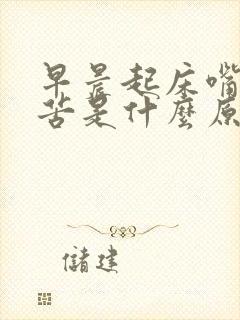 早晨起床嘴
苦是什麼原
儲建